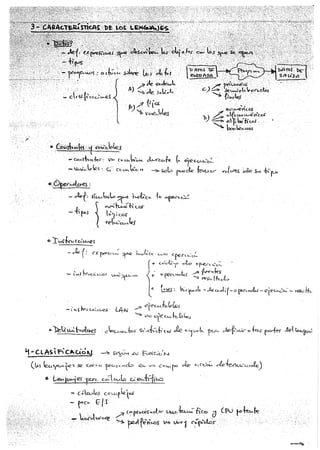 3- CARACTERÍSTICAS DE LOS LENGUAJES
• Datos
- def: expresiones que describen los objetos con los que se opera
- tipos
- programa: actúan sobre los datos
DATOS DE ENTRADA → Programa → DATOS DE SALIDA
- clasificaciones
A) de entrada
de salida
B) fijos
variables
C) primarios
semielaborados
finales
D) numéricos
alfanuméricos
alfabéticos
booleanos
• Constantes y variables
- constantes: no cambian durante la ejecución
- variables: sí cambian → solo puede tomar valores de su tipo
• Operadores:
- def: símbolo que indica la operación
- tipos
aritméticos
lógicos
relacionales
• Instrucciones
- def: expresión que indica una operación
- instrucciones máquina
• código de operación
• operandos
fuentes
resultado
• fases: búsqueda - decodif - operandos - ejecución - result
- instrucciones LAN
ejecutables
no ejecutables
• Delimitadores elementos sintácticos de ayuda para definir otras partes del lenguaje
4- CLASIFICACIÓN → según su función
(los lenguajes se crean pensando en un campo de acción determinado)
• Lenguajes para cálculo científico
- cálculos complejos
- poco E/S
- hardware
coprocesador matemático y CPU potente
periféricos no muy rápidos